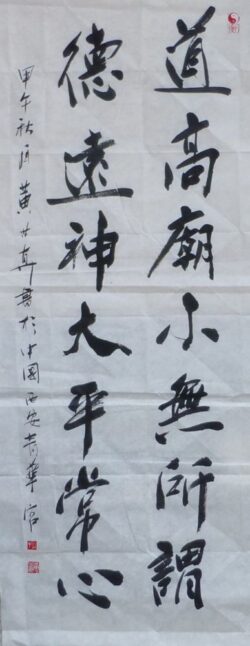 道高廟小無所謂
德遠神大平常心
甲午秋月黄世真書於中國西安青華宮